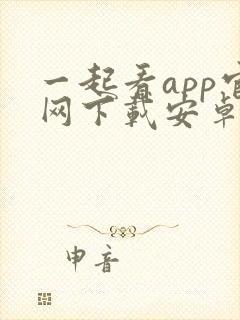 一起看app官
网下载安卓
申音